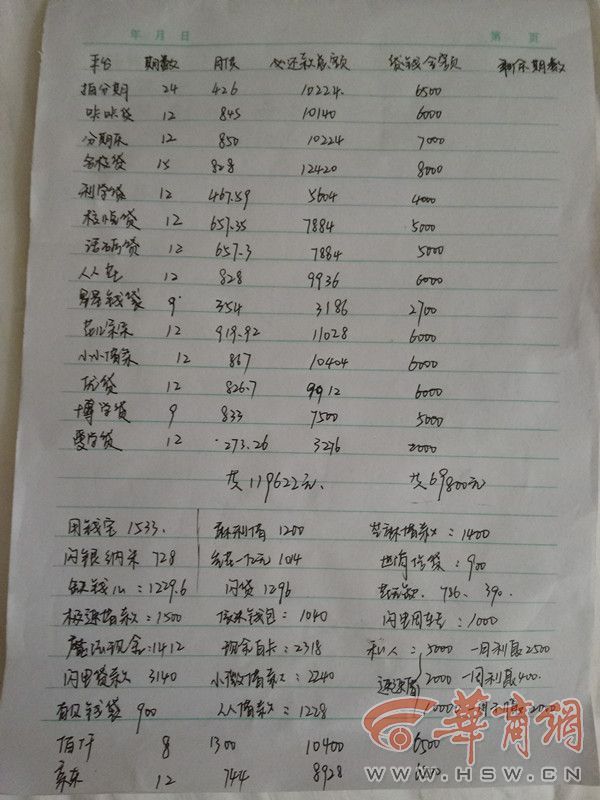 年 月 日 第 页
平台 期数 月供 必还款总额 贷钱金额 剩余期数
拍分期 24 426 10224 6500
咔咔贷 12 845 10140 6000
分期乐 12 850 10224 7000
名校贷 15 828 12420 8000
利学贷 12 467.59 5604 4000
12 657.35 7884 5000
12 657.3 7884 5000
人人 12 828 9936 6000
星星钱袋 9 354 3186 2700
12 919.92 11028 6000
小小借条 12 867 10404 6000
优贷 12 826.7 9912 6000
博学贷 9 833 7500 5000
爱学贷 12 273.26 3276 2000
共119622元、 共69800元
用钱宝 1533. 麻利借 1200 芝麻借款:1400
闪银纳米 728 1014 信贷:900
缺钱么:1229.6 闪贷 1296 786、390
极速借款:1500 钱包:1040 闪电周转:1000
魔法现金:1412 现金白卡:2318 私人:5000 一周利息2500
闪电贷款 3140 小微借款:2240 速速借 2000 一周利息400
钱袋 900 人人借款:1228 10000
佰仟 8 1300 10400 6500
京东 12 744 8928
華商網
WWW.HSW.CN